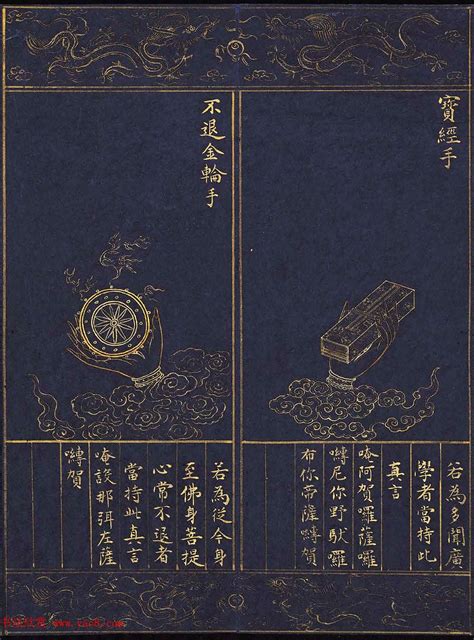 寶經手
若為多聞廣
學者當持此
真言
唵阿賀囉薩囉
嚩尼你野馱囉
布你帝薩嚩賀
不退金輪手
若為從今身
至佛身菩提
心常不退者
當持此真言
唵設那弭左薩
嚩賀